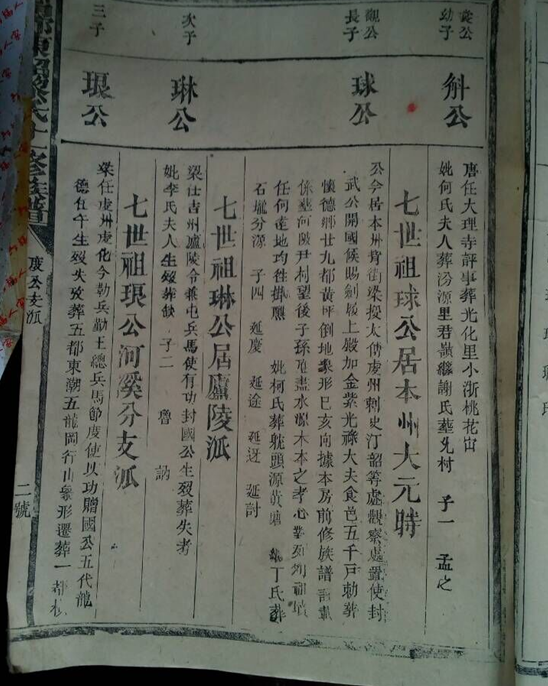 袞公
幼子
斛公
觀公
長子
球公
次子
琳公
三子
琅公
唐任大理寺評事葬光化里小浙桃花宙
妣何氏夫人葬汾源里君嶺繼謝氏葬見村 子一 孟之
七世祖球公居本州大元時
公今居本州背街梁授太傅虔州刺史汀韶等處觀察處置使封
武公開國候賜劍履上殿加金紫光祿大夫食邑五千戶勅葬
懷德鄉廿九都黃坪倒地象形巳亥向據本房前修族譜
係葬河陂尹村望後子孫 盡水源木本之孝心 祖墳
任何遠地均往掛 妣柯氏葬 頭源黃 丁氏葬
石壠分源 子四 延慶 延途 延迓 延討
七世祖琳公居廬陵派
梁仕吉州廬陵令兼屯兵馬使有功封國公生歿葬失考
妣李氏夫人生歿葬缺 子二 魯 訥
七世祖琅公河溪分支派
梁任虔州虔化今勒兵勤王總兵馬節度使以功贈國公五代龍
德壬午生歿失攷葬五都東潮五龍岡行山象形遷葬一都
虔公支派
二號